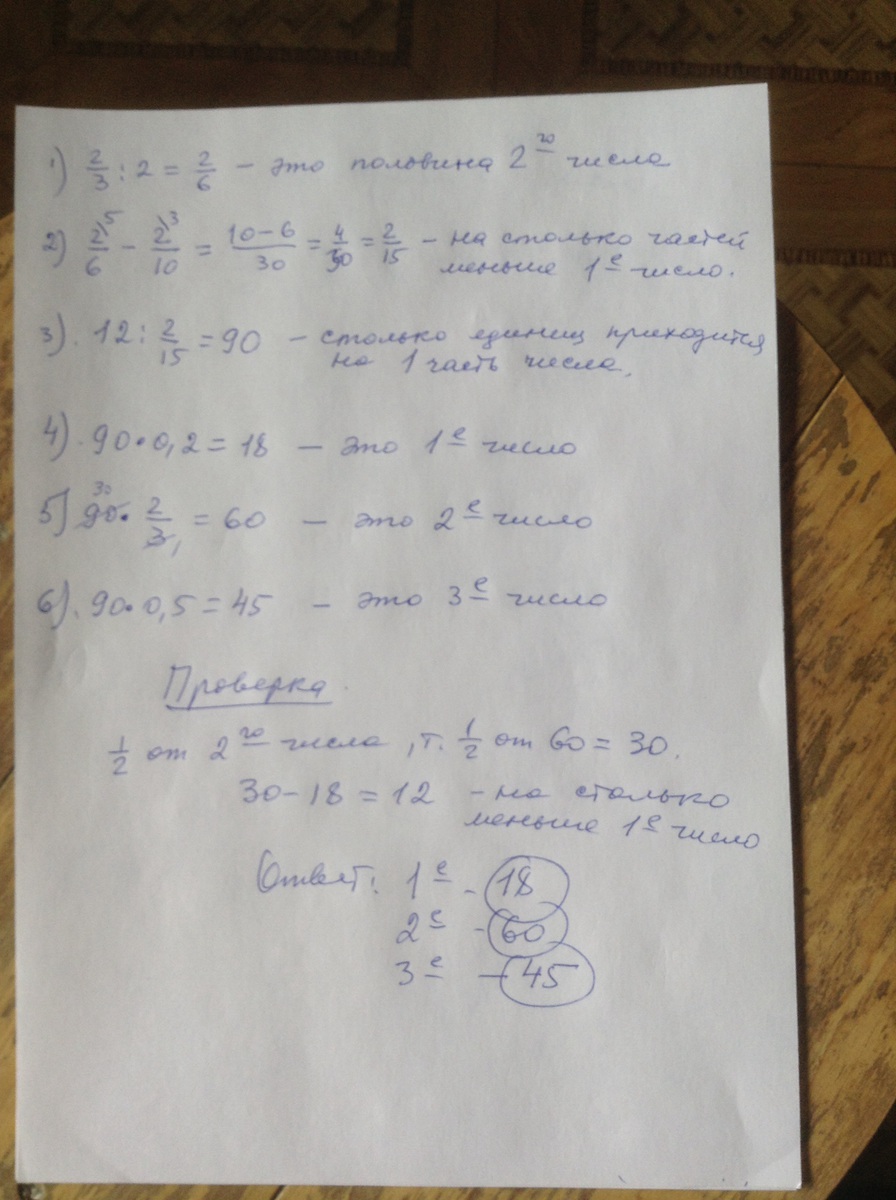 1) 2/3 : 2 = 2/6 – это половина 2го числа
2) 2\5/6 – 2\3/10 = 10–6/30 = 4/30 = 2/15 – на столько частей
меньше 1е число.
3). 12 : 2/15 = 90 – столько единиц приходится
на 1 часть числа,
4). 90·0,2 = 18 – это 1е число
30
5) 90 · 2/3, = 60 – это 2е число
6). 90·0,5 = 45 – это 3е число
Проверка.
1/2 от 2го числа, т. 1/2 от 60 = 30.
30–18 = 12 – на столько
меньше 1е число
Ответ: 1е – 18
2е – 60
3е – 45